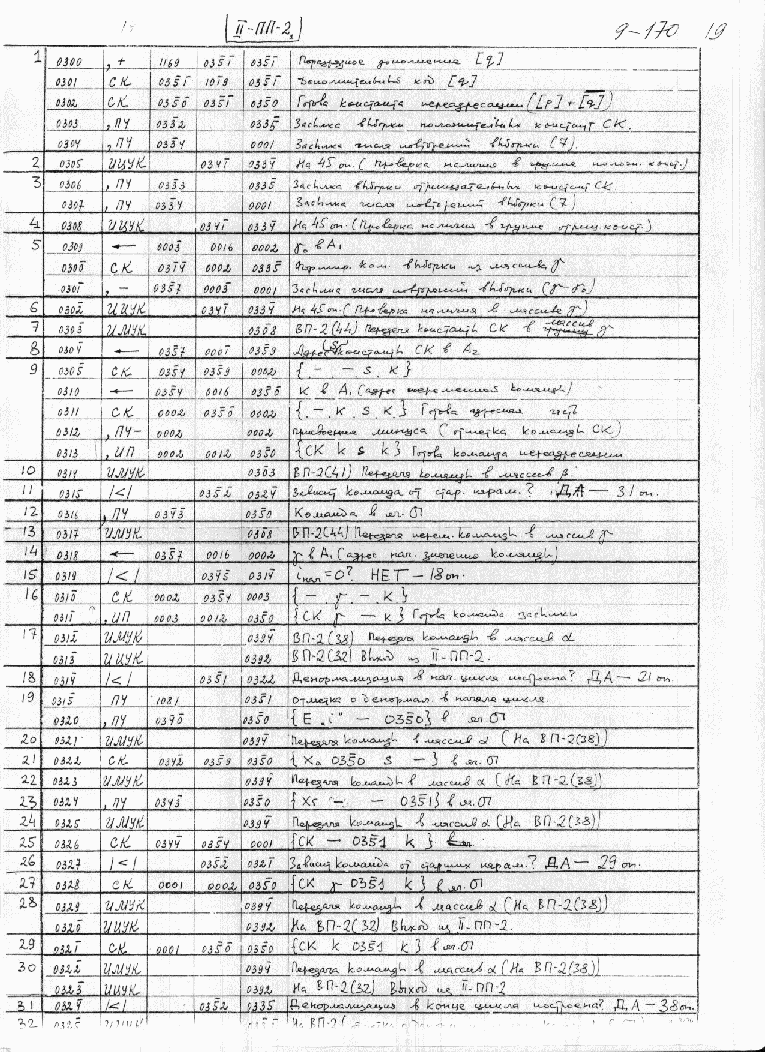 II-ПП-2, 9-170 19
1 0300 , + 1169 035̅1̅ 035̅1̅ Поразрядное дополнение [q]
0301 СК 035̅1̅ 1018 035̅1̅ Дополнительный код [q]
0302 СК 035̅0̅ 035̅1̅ 035̅0 Готова константа переадресации ([p] + [q̅])
0303 , ПЧ 033̅2 0335̅ Засылка выборки положительных констант СК.
0304 , ПЧ 035̅4 0001 Засылка числа повторений выборки (7).
2 0305 ИЦУК 034̅1̅ 033̅4̅ На 45 оп. (Проверка наличия в группе полож. конст.)
3 0306 , ПЧ 033̅3 0335̅ Засылка выборки отрицательных констант СК
0307 , ПЧ 035̅4 0001 Засылка числа повторений выборки (7)
4 0308 ИЦУК 034̅1̅ 033̅4̅ На 45 оп. (Проверка наличия в группе отриц. конст)
5 0309 ← 0003̅ 0016 0002 γ₀ в А₁
030̅0̅ СК 031̅4̅ 0002 0335̅ Формир. ком. выборки из массива γ
030̅1̅ , – 035̅7 0003̅ 0001 Засылка числа повторений выборки (γ - γ₀)
6 030̅2̅ ИЦУК 034̅1̅ 033̅4̅ На 45 оп. (Проверка наличия в массиве γ)
7 030̅3̅ ИМУК 030̅8 ВП-2(44) Передача константы СК в массив γ
8 030̅4̅ ← 035̅7 000̅1̅ 035̅9 Адрес (S) константы СК в А₂
9 030̅5̅ СК 035̅4 035̅9 0002 { – – S K }
0310 ← 035̅4 0016 035̅6 К в А₁ (адрес переменной команды)
0311 СК 0002 035̅0̅ 0002 { – K S K } Готова адресная часть
0312 , ПЧ– 0002 0002 Присвоение минуса (отметка команды СК)
0313 , ИП 0002 0012 035̅0 {СК k s k} Готова команда переадресации
10 0314 ИМУК 03̅03 ВП-2(41) Передача команды в массив β
11 0315 |<| 035̅2 032̅4̅ Зависит команда от стар. парам.? ДА — 31 оп.
12 0316 , ПЧ 034̅3̅ 035̅0 Команда в яч. 01
13 0317 ИМУК 030̅8 ВП-2(44) Передача перем. команды в массив γ
14 0318 ← 035̅7 0016 0002 γ в А₁ (адрес нач. значения команды)
15 0319 |<| 034̅5̅ 031̅4̅ iнач = 0? НЕТ — 18 оп.
16 031̅0̅ СК 0002 035̅4 0003 { – γ – k }
031̅1̅ , ИП 0003 0012 035̅0 {СК γ – k} Готова команда засылки
17 031̅2̅ ИМУК 039̅4̅ ВП-2(38) Передача команды в массив α
031̅3̅ ИЦУК 0392 ВП-2(32) Выход из II-ПП-2.
18 031̅4̅ |<| 035̅1 0322 Денормализация в нач. цикла построена? ДА — 21 оп.
19 031̅5̅ ПЧ 1081 035̅1 отметка о денормал. в начале цикла
0320 , ПЧ 034̅0̅ 035̅0 {E „i" – 035̅0} в яч. 01
20 0321 ИМУК 039̅4̅ Передача команды в массив α (На ВП-2(38))
21 0322 СК 034̅2 035̅9 035̅0 {Ха 035̅0 S –} в яч. 01
22 0323 ИМУК 039̅4̅ Передача команды в массив α (На ВП-2(38))
23 0324 , ПЧ 034̅3̅ 035̅0 {Х5 – – 035̅1} в яч. 01
24 0325 ИМУК 039̅4̅ Передача команды в массив α (На ВП-2(38))
25 0326 СК 034̅4̅ 035̅4 0001 {СК – 035̅1 k}
26 0327 |<| 035̅2 032̅1̅ Зависит команда от старших парам.? ДА — 29 оп.
27 0328 СК 0001 0002 035̅0 {СК γ 035̅1 k} в яч. 01
28 0329 ИМУК 039̅4̅ Передача команды в массив α (На ВП-2(38))
032̅0̅ ИЦУК 0392 На ВП-2(32) Выход из II-ПП-2.
29 032̅1̅ СК 0001 035̅0̅ 035̅0 {СК k 035̅1 k} в яч. 01
30 032̅2̅ ИМУК 039̅4̅ Передача команды в массив α (На ВП-2(38))
032̅3̅ ИМУК 0392 На ВП-2(32) Выход из II-ПП-2
31 032̅4̅ |<| 035̅2 0335 Денормализация в конце цикла построена? ДА — 38 оп.
32 032̅5̅